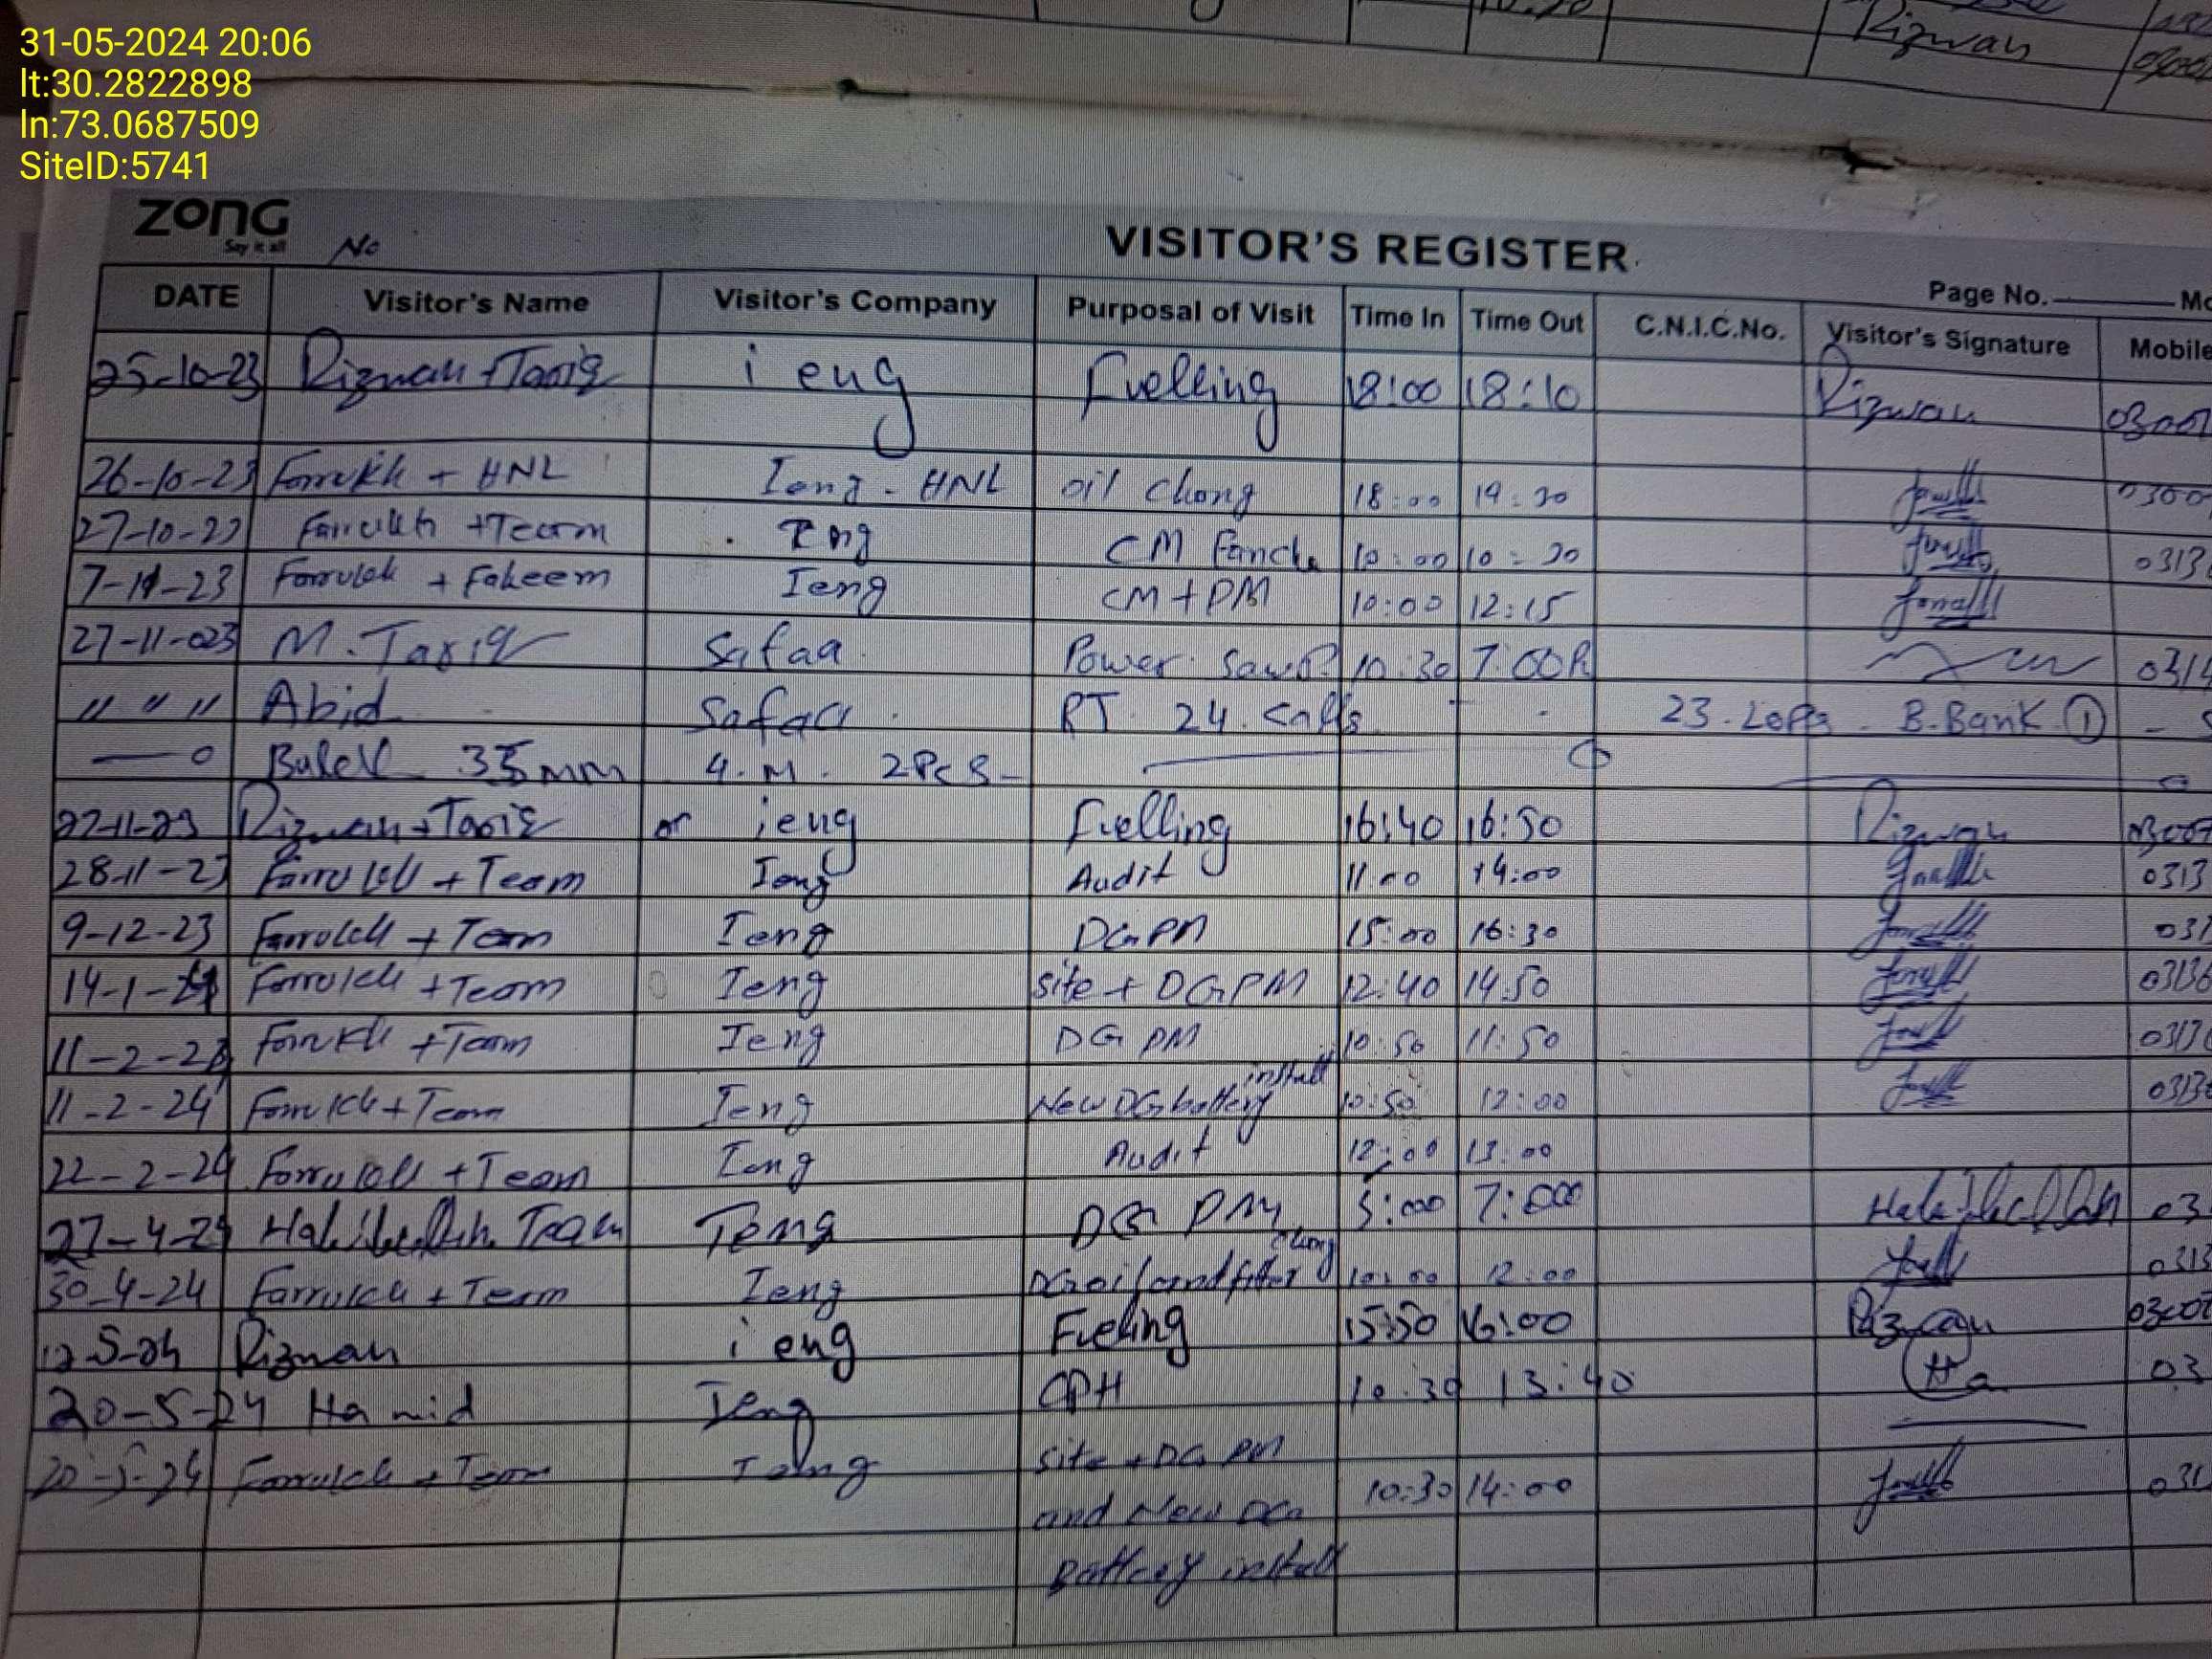 31-05-2024 20:06
lt:30.2822898
ln:73.0687509
SiteID:5741
Rizwan
ZONG
Say it all
No
VISITOR'S REGISTER
Page No.
DATE Visitor's Name Visitor's Company Purposal of Visit Time In Time Out C.N.I.C.No. Visitor's Signature Mobile
25-10-23 Rizwan + Tariq i eng Fuelling 18:00 18:10 Rizwan
26-10-23 Farrukh + HNL Ieng - HNL oil Chang 18:00 19:30 0300
27-10-23 Farrukh + Team Ieng CM 10:00 10:30 0313
7-11-23 Farrukh + Faheem Ieng CM + PM 10:00 12:15
27-11-023 M. Tariq Safaa Power 10:30 7:00 0314
" " " Abid Safaa RT 24 Cells 23. B.Bank ①
35mm 4.M. 2Pcs
27-11-23 Rizwan + Tariq ieng Fuelling 16:40 16:50 Rizwan
28-11-23 Farrukh + Team Ieng Audit 11:00 14:00 0313
9-12-23 Farrukh + Team Ieng DG PM 15:00 16:30 031
14-1-24 Farrukh + Team Ieng site + DG PM 12:40 14:50 0313
11-2-24 Farrukh + Team Ieng DG PM 10:50 11:50 0313
11-2-24 Farrukh + Team Ieng New DG battery install 10:50 12:00 0313
22-2-24 Farrukh + Team Ieng Audit 12:00 13:00
27-4-24 Team Ieng DG PM 5:000 7:000 03
30-4-24 Farrukh + Team Ieng DG oil and filter Chang 10:00 12:00 0313
12-5-24 Rizwan i eng Fueling 15:50 16:00 Rizwan
20-5-24 Hamid Ieng CPH 10:30 13:40 Ha 03
20-5-24 Farrukh + Team Ieng site + DG PM
and New DG 10:30 14:00 031
Battery install